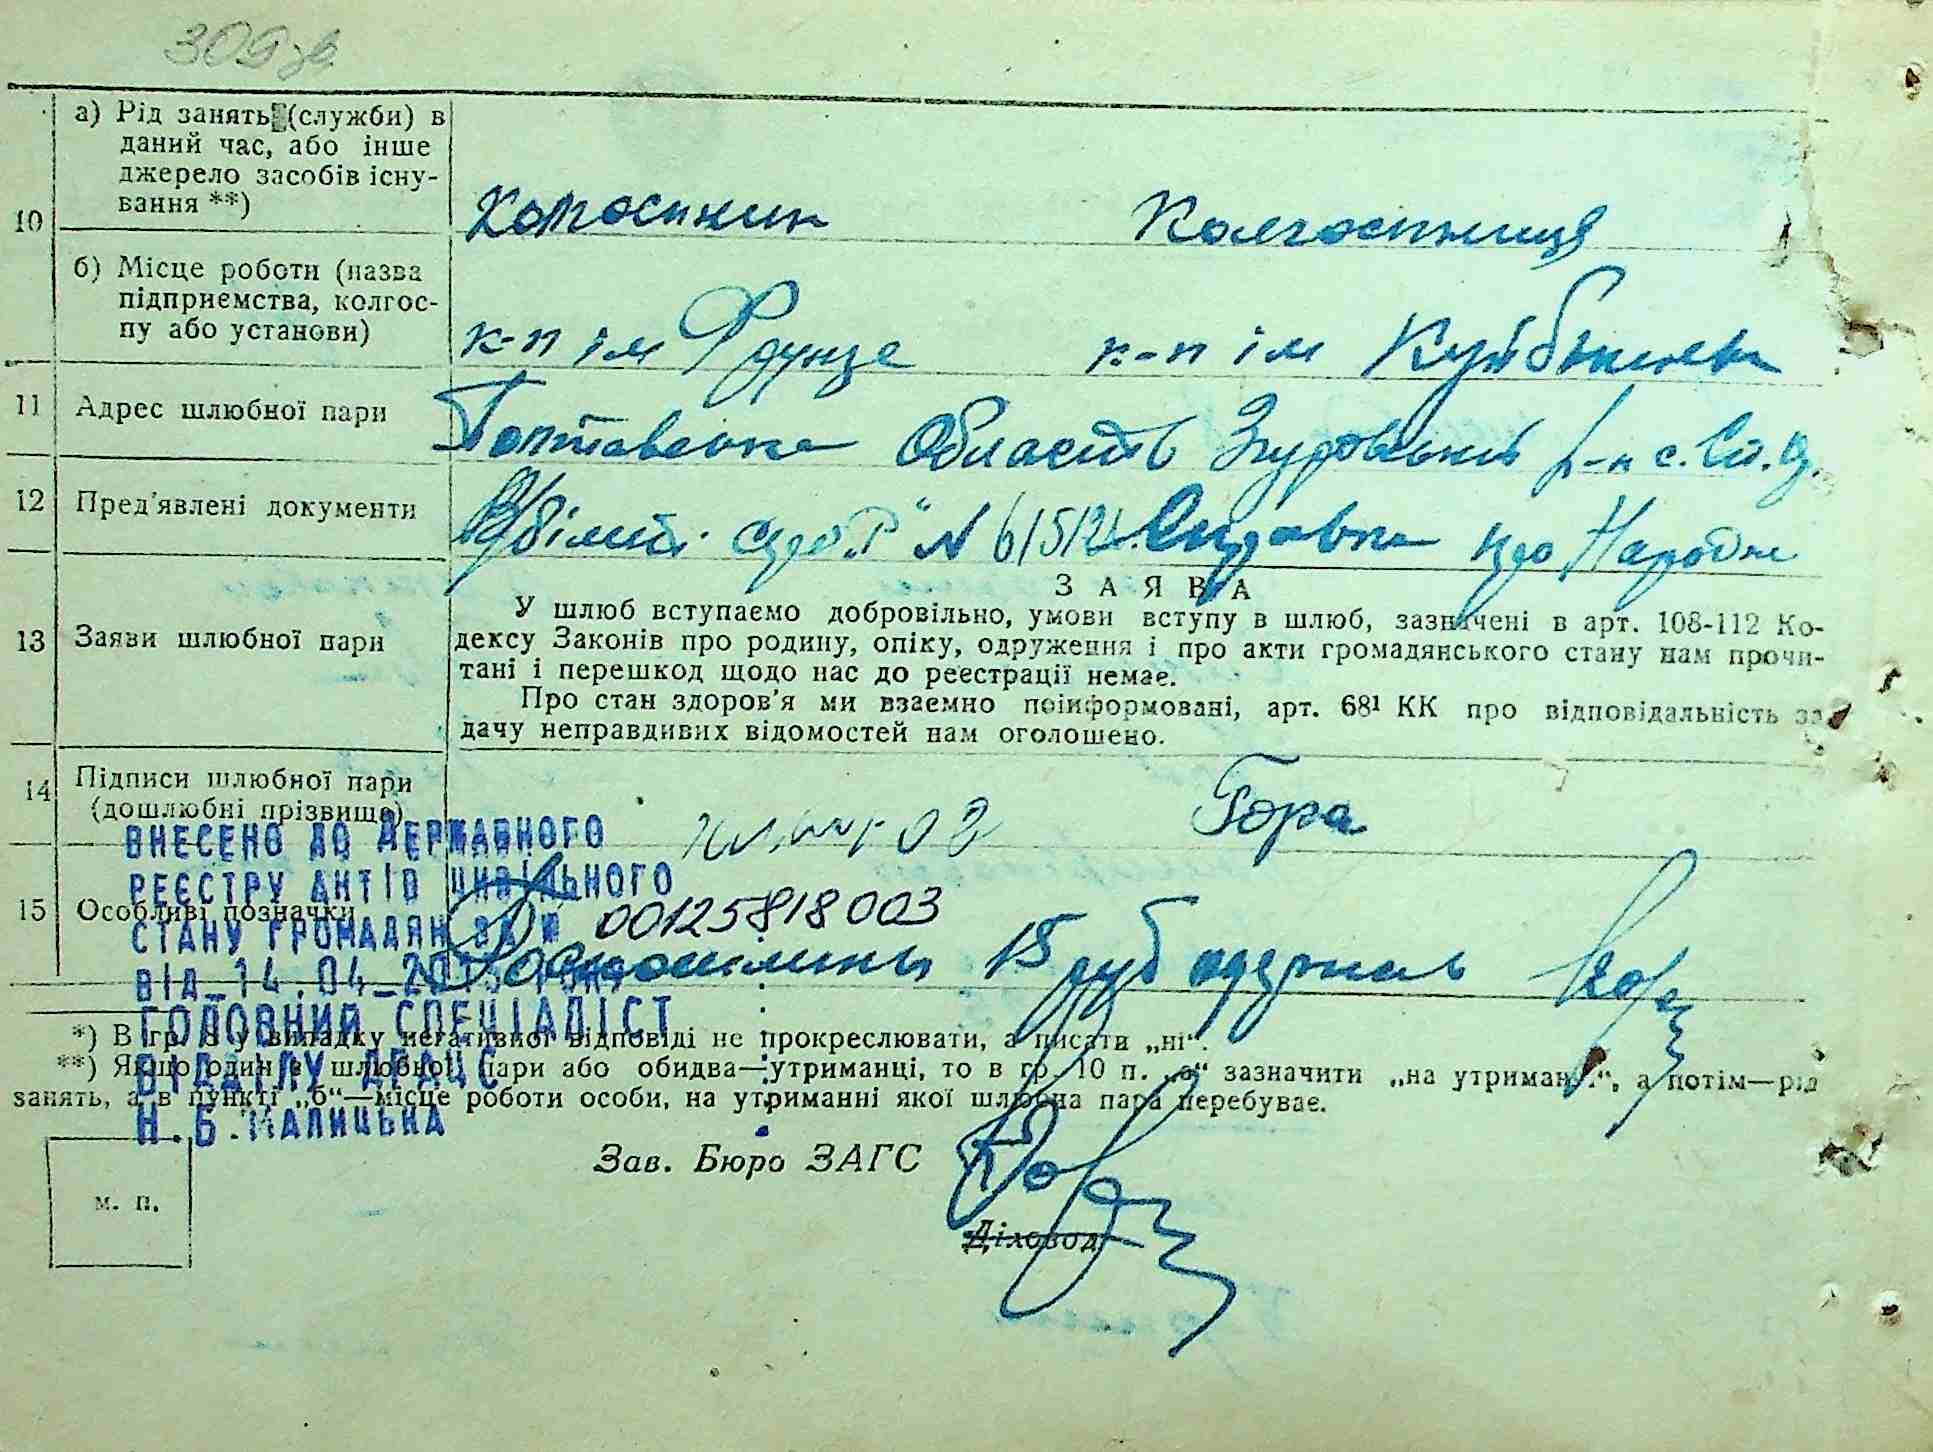 309 зв.
а) Рід занять (служби) в
даний час, або інше
джерело засобів існу-
вання **)
10
Колгоспник Колгоспниця
б) Місце роботи (назва
підприємства, колгос-
пу або установи)
к-п ім Фрунзе к-п ім Куйбышева
11 Адрес шлюбної пари
Полтавська Область Згуровський р-н с.
12 Пред'явлені документи
№ 615121. Справка про Народж
13 Заяви шлюбної пари
ЗАЯВА
У шлюб вступаємо добровільно, умови вступу в шлюб, зазначені в арт. 108-112 Ко-
дексу Законів про родину, опіку, одруження і про акти громадянського стану нам прочи-
тані і перешкод щодо нас до реєстрації немає.
Про стан здоров'я ми взаємно поінформовані, арт. 68¹ КК про відповідальність за
дачу неправдивих відомостей нам оголошено.
14 Підписи шлюбної пари
(дошлюбні прізвища)
Гора
15 Особливі позначки
ВНЕСЕНО ДО ДЕРЖАВНОГО
РЕЄСТРУ АКТІВ ЦИВІЛЬНОГО
СТАНУ ГРОМАДЯН ЗА № 00125818003
ВІД 14.04.2015 РОКУ
ГОЛОВНИЙ СПЕЦІАЛІСТ
ВІДДІЛУ ДРАЦС
Н.Б.МАЛИЦЬКА
15 руб одержал
*) В гр. 8 у випадку негативної відповіді не прокреслювати, а писати „ні“.
**) Якщо один з шлюбної пари або обидва—утриманці, то в гр. 10 п. „а“ зазначити „на утриманні“, а потім—рід
занять, а в пункті „б“—місце роботи особи, на утриманні якої шлюбна пара перебуває.
м. п.
Зав. Бюро ЗАГС
Діловод